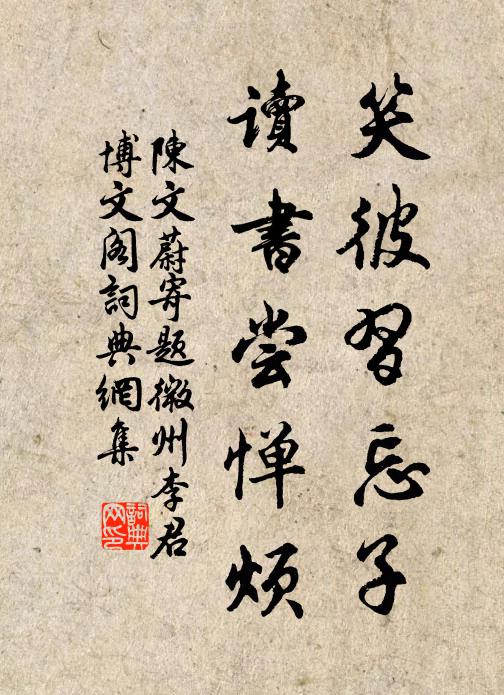 笑彼習忘子
讀書嘗憚煩
陳文蔚寄題徽州李君
博文阁詞典網集
詞典
网印